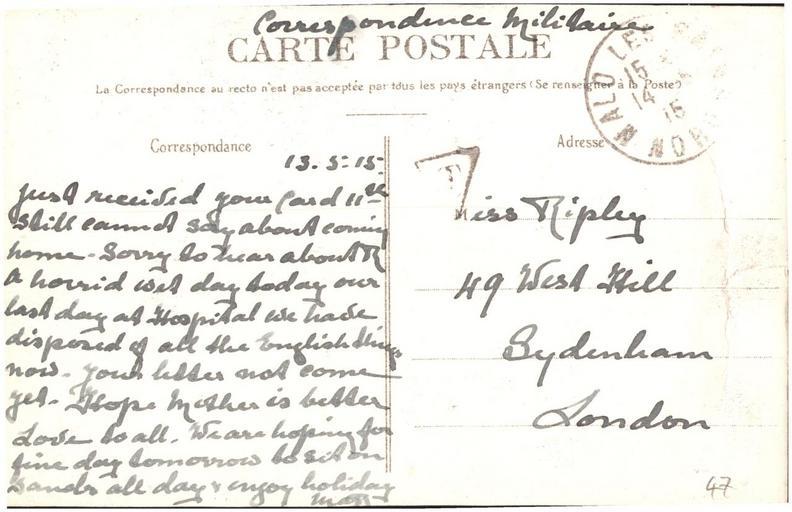 Correspondence Militaire
CARTE POSTALE
La Correspondance au recto n'est pas acceptée par tous les pays étrangers (Se renseigner à la Poste)
Correspondance
13.5.15
Just received your Card 11th
still cannot say about coming
home. Sorry to hear about R
A horrid wet day today our
last day at Hospital we have
disposed of all the English things
now. your letter not come
yet. Hope Mother is better
Love to all. We are hoping for
fine day tomorrow to sit on
Sands all day & enjoy holiday
Adresse
T
Miss Ripley
49 West Hill
Sydenham
London
MALO LES
15
14 15
47